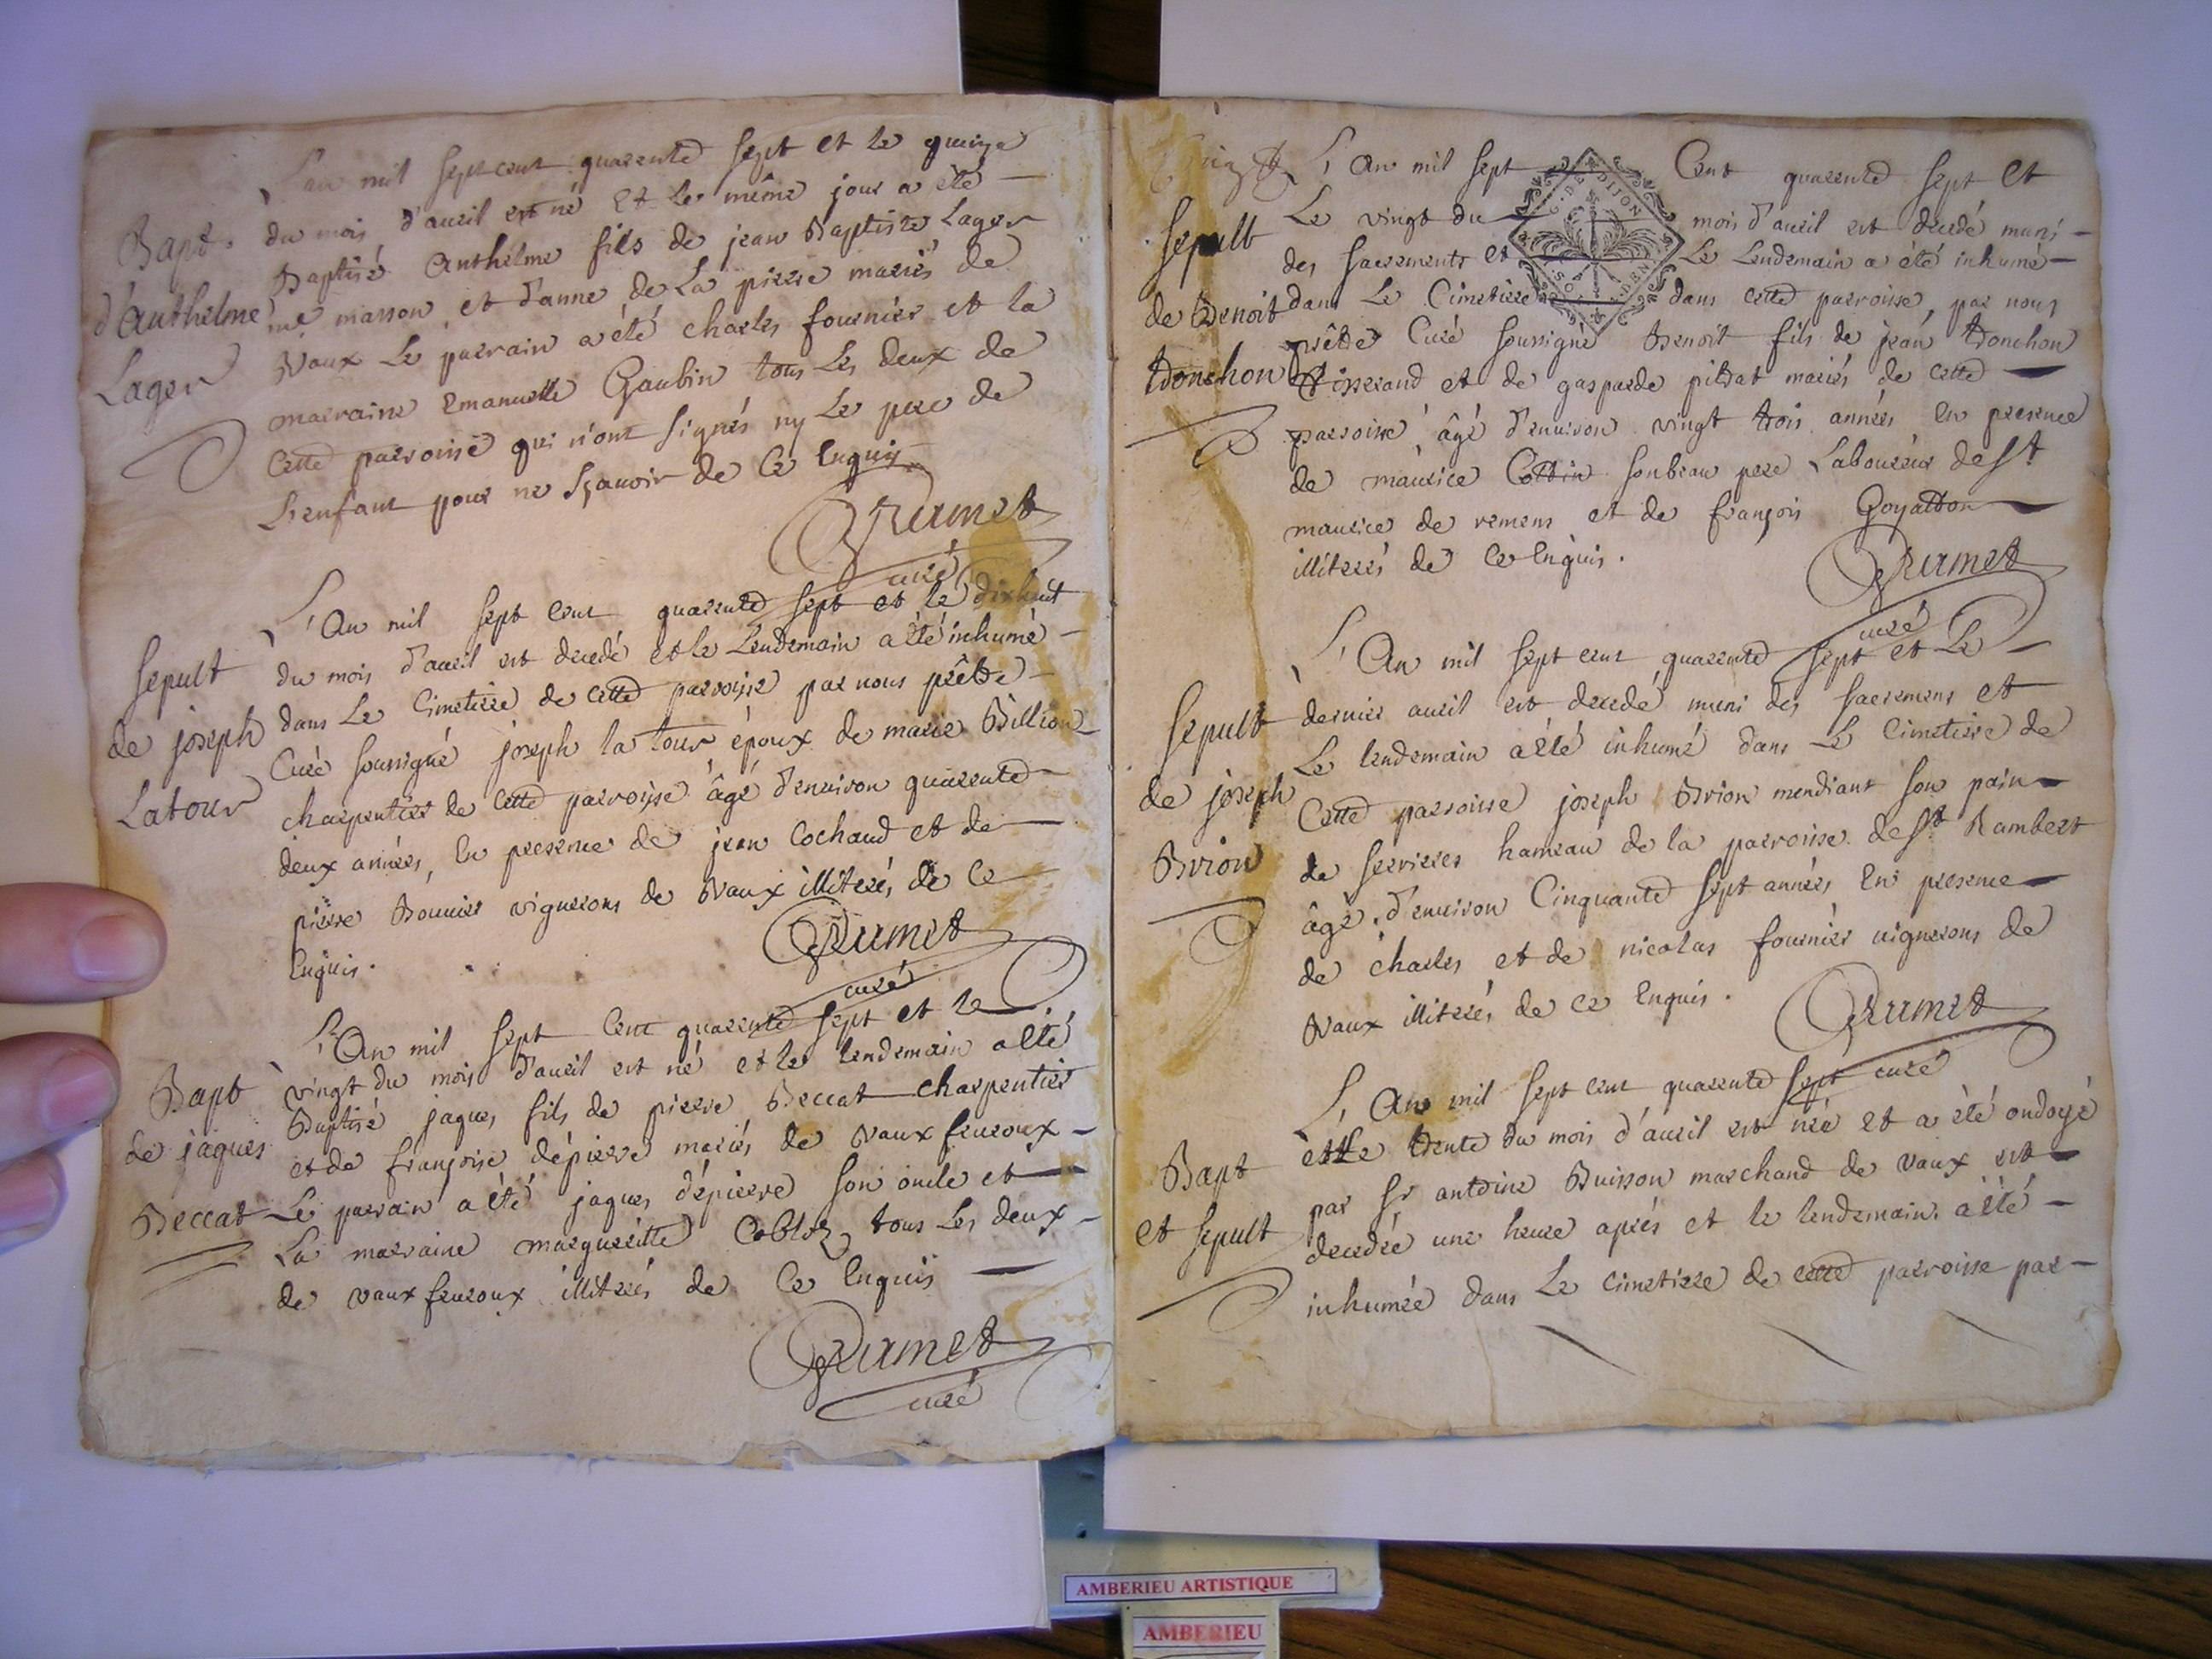 L'an mil sept cent quarente sept et le quinze
Bapt. du mois d'avril est né Et Le même jour a été
Baptisé Anthelme fils de jean Baptiste Lager
d'Anthelme me masson et d'anne de La pierre mariés de
Vaux Le parrain a été charles fournier et la
Lager marraine Emanuelle Gaubin tous Les deux de
Cette parroisse qui n'ont signés ny Le pere de
L'enfant pour ne sçavoir de Ce Enquis
Rumet
curé
L'An mil sept cent quarente sept et le dixhuit
Sepult du mois d'avril est decedé et le Lendemain a été inhumé
dans Le Cimetiere de cette parroisse par nous prêtre
de joseph Curé soussigné joseph la tour époux de marie Billion
Latour charpentier de Cette parroisse âgé d'environ quarente
deux années, En presence de jean Cochand et de
pierre Bouvier vignerons de Vaux illiterés de Ce
Enquis.
Rumet
curé
L'An mil sept Cent quarente sept et le
Bapt vingt du mois d'avril est né et le lendemain a été
Baptisé jaques fils de pierre Beccat charpentier
de jaques et de françoise dépierre mariés de vaux fevroux
Beccat Le parrain a été jaques dépierre son oncle et
La marraine margueritte tous Les deux
de vaux fevroux illiterés de Ce Enquis
Rumet
curé
L'An mil sept Cent quarente sept Et
G. DE DIJON
Sepult Le vingt du mois d'avril est decedé muni
des sacrements et Le Lendemain a été inhumé
de Benoit dans Le Cimetiere dans cette parroisse, par nous
prêtre Curé soussigné Benoit fils de jean tronchon
tronchon tisserand et de gasparde pittrat mariés de cette
parroisse âgé d'environ vingt trois années en presence
de maurice Cottin son beau pere Laboureur de St
maurice de remens et de françois Goyatton
illiterés de Ce Enquis.
Rumet
curé
L'An mil sept cent quarente sept et Le
Sepult dernier avril est decedé muni des sacremens et
Le lendemain a été inhumé dans Le Cimetiere de
de joseph Cette parroisse joseph Brion mendiant son pain
Brion de serrieres hameau de la parroisse de St Rambert
âgé d'environ Cinquante sept années En presence
de charles et de nicolas fournier vignerons de
Vaux illiterés de ce Enquis.
Rumet
curé
L'An mil sept cent quarente sept
et Le trente du mois d'avril est née et a été ondoyé
Bapt par Sr antoine Buisson marchand de vaux est
et sepult decedée une heure aprés et le lendemain a été
inhumée dans Le cimetiere de cette parroisse par
AMBERIEU ARTISTIQUE
AMBERIEU